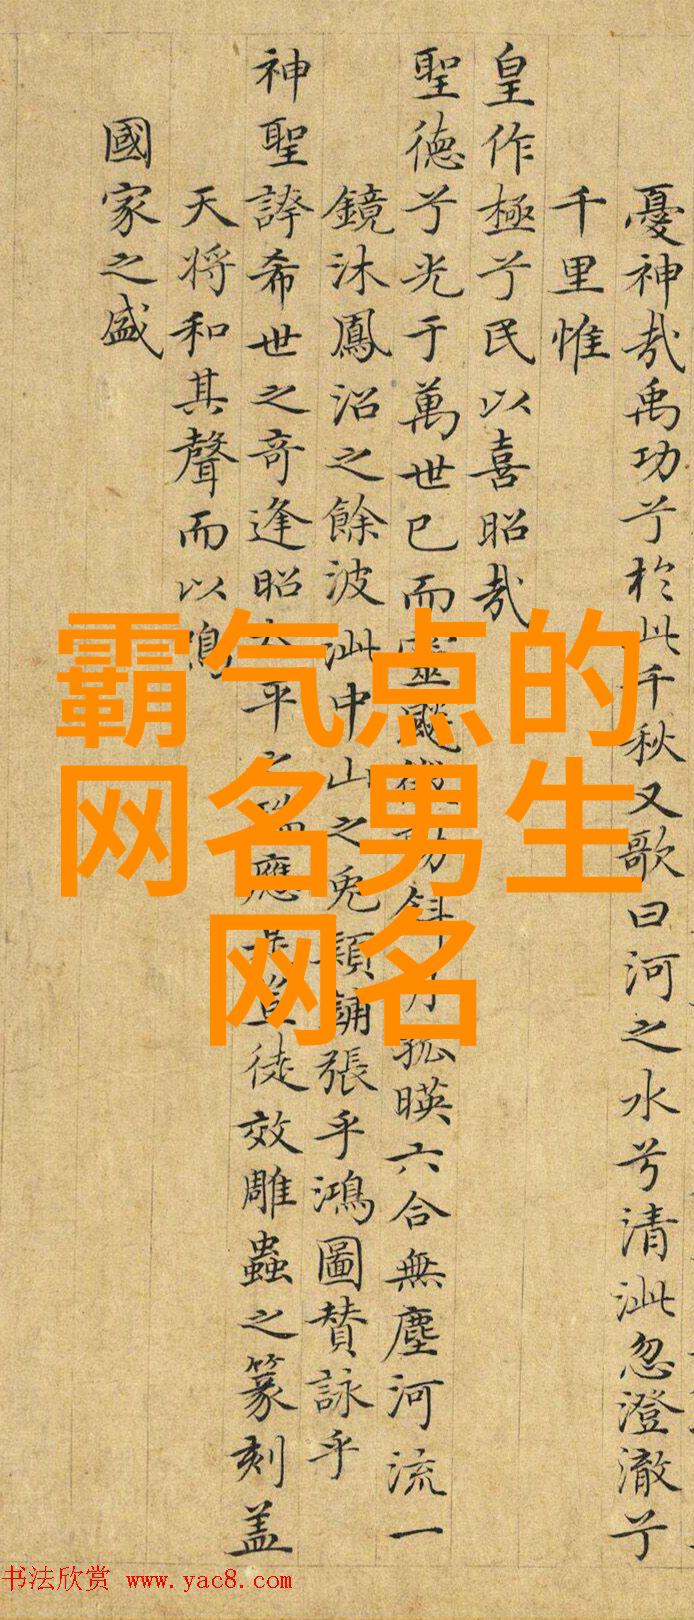 憂神哉禹功兮於此千秋又歌曰河之水兮清泚忽澄澈兮
千里惟
皇作極兮民以喜昭哉
聖德兮光于萬世已而靈動孤暎六合無塵河流一
鏡沐鳳沼之餘波泚中山之兔穎誦張乎鴻圖賛詠乎
神聖誇希世之奇逢昭平之應徒效雕蟲之篆刻盖
天将和其聲而以鳴
國家之盛
霸气点的
网名男生
网名
书法欣赏 www.yac8.com